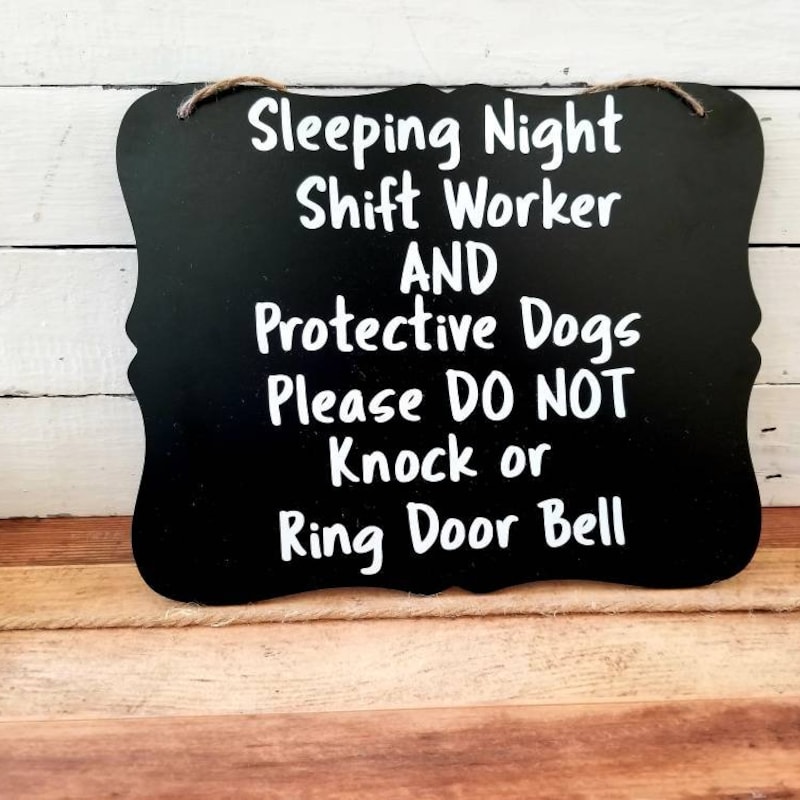 Sleeping Night
Shift Worker
AND
Protective Dogs
Please DO NOT
Knock or
Ring Door Bell